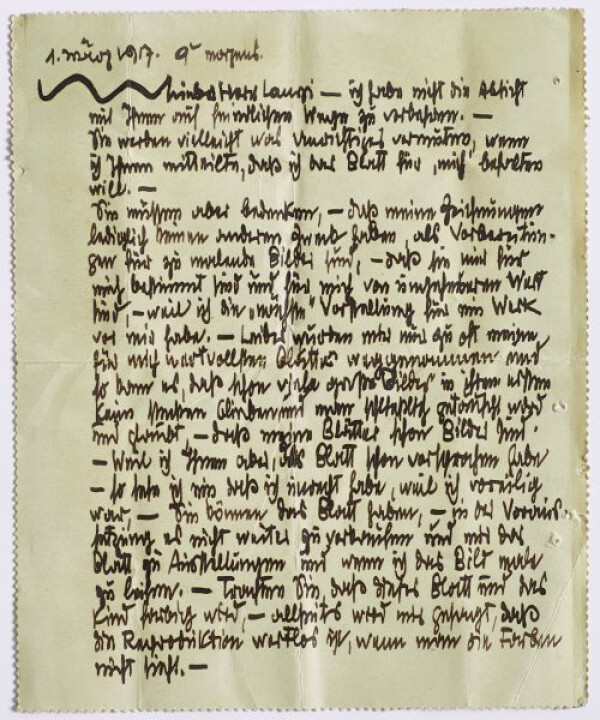 1. März 1917. 9h morgens.
Lieber Herr Lanyi — ich habe nicht die Absicht
mit Ihnen auf feindlichem Wege zu verkehren. —
Sie werden vielleicht was Unrichtiges vermuten, wenn
ich Ihnen mitteilte, daß ich das Blatt für „mich“ behalten
will. —
Sie müssen aber bedenken, — daß meine Zeichnungen
lediglich keinen anderen Zweck haben, als Vorbereitun-
gen für zu malende Bilder sind, — daß sie nur für
mich bestimmt sind und für mich von ungeheurem Wert
sind, — weil ich die „nächste“ Vorstellung für ein Werk
vor mir habe. — Leider wurden mir nur zu oft meine,
für mich wertvollsten Blätter weggenommen und
so kam es, daß schon viele große Bilder in ihrem ersten
Keim stecken blieben und man schließlich getäuscht wird
und glaubt, — daß meine Blätter schon Bilder sind.
— Weil ich Ihnen aber, das Blatt schon versprochen habe
— so sehe ich ein daß ich unrecht habe, weil ich voreilig
war, — Sie können das Blatt haben, — in der Voraus-
setzung es nicht weiter zu verkaufen und mir das
Blatt zu Ausstellungen und wenn ich das Bild male
zu leihen. — Trachten Sie, daß dieses Blatt und das
Kind farbich wird, — allseits wird mir gesagt, daß
die Reproduktion wertlos ist, wenn man die Farben
nicht sieht. —